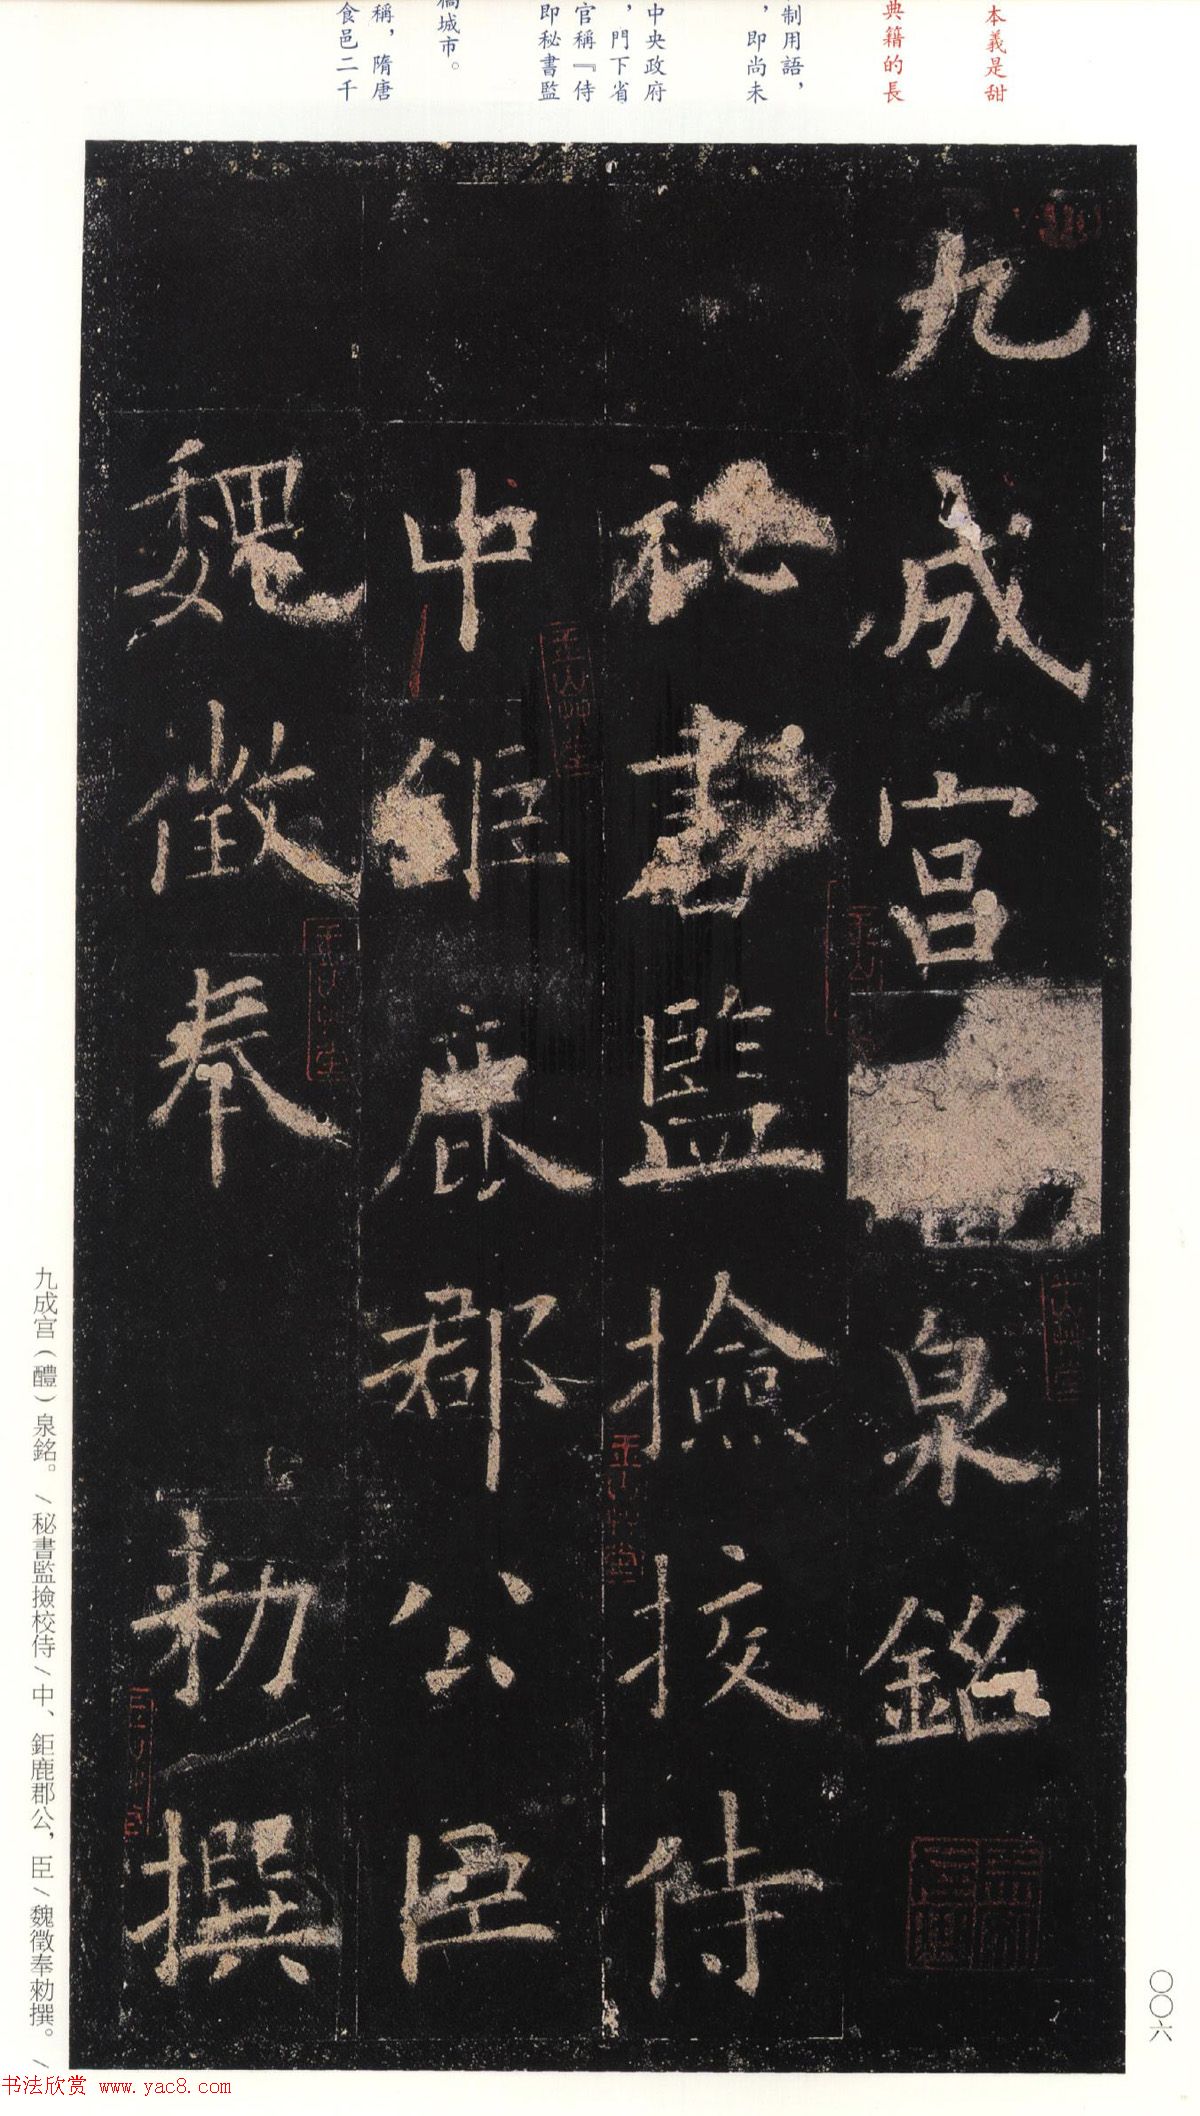 本義是甜
典籍的長
制用語，
，即尚未
中央政府
，門下省
官稱『侍
即秘書監
城市。
稱，隋唐
食邑二千
九成宮泉銘
祕書監撿挍侍
中鉅鹿郡公臣
魏徵奉
勑撰
九成宮（醴）泉銘。/秘書監撿校侍/中、鉅鹿郡公，臣/魏徵奉勑撰。/
〇〇六
书法欣赏 www.yac8.com